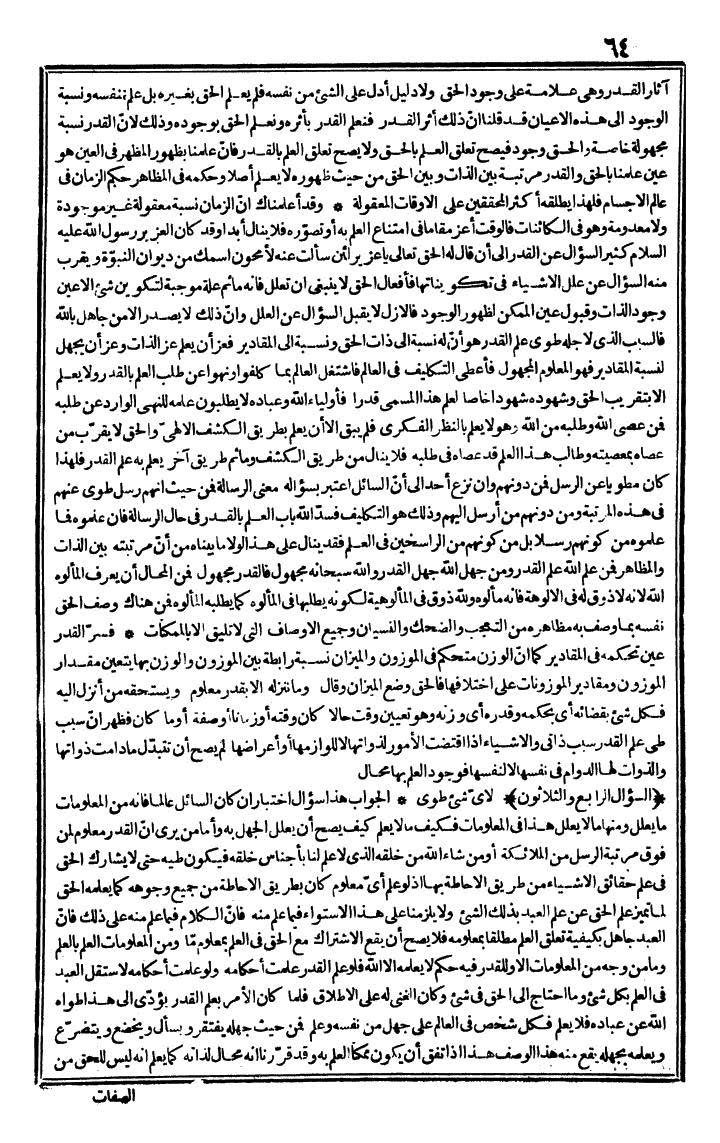 ٦٤
آثار القدر وهى علامة على وجود الحق ولا دليل أدل على الشئ من نفسه فلم يعلم الحق بغيره بل علم بنفسه ونسبة
الوجود الى هذه الاعيان قد قلنا انّ ذلك أثر القدر فنعلم القدر بأثره ونعلم الحق بوجوده وذلك لانّ القدر نسبة
مجهولة خاصة والحق وجود فيصح تعلق العلم بالحق ولا يصح تعلق العلم بالقدر فانّ علمنا بظهور المظهر فى العين هو
عين علمنا بالحق والقدر مرتبة بين الذات وبين الحق من حيث ظهوره لا يعلم أصلا وحكمه فى المظاهر حكم الزمان فى
عالم الاجسام فلهذا يطلقه أكثر المحققين على الاوقات المعقولة * وقد أعلمناك انّ الزمان نسبة معقولة غير موجودة
ولا معدومة وهو فى الكائنات فالوقت أعز مقاما فى امتناع العلم به أو تصوّره فلا ينال أبدا وقد كان العزير رسول الله عليه
السلام كثير السؤال عن القدر الى أن قال له الحق تعالى يا عزير لئن سألت عنه لأمحون اسمك من ديوان النبوّة ويقرب
منه السؤال عن علل الاشياء فى تكويناتها فأفعال الحق لا ينبغى ان تعلل فانه ماثم علة موجبة لتكوين شئ الا عين
وجود الذات وقبول عين الممكن لظهور الوجود فالازل لا يقبل السؤال عن العلل وانّ ذلك لا يصدر الا من جاهل بالله
فالسبب الذى لاجله طوى علم القدر هو أنّ له نسبة الى ذات الحق ونسبة الى المقادير فعز أن يعلم عز الذات وعز أن يجهل
لنسبة المقادير فهو المعلوم المجهول فأعطى التكليف فى العالم فاشتغل العالم بما كلفوا ونهوا عن طلب العلم بالقدر ولا يعلم
الا بتقريب الحق وشهوده شهودا خاصا لعلم هذا المسمى قدرا فأولياء الله وعباده لا يطلبون علمه للنهى الوارد عن طلبه
فمن عصى الله وطلبه من الله وهو لا يعلم بالنظر الفكرى فلم يبق الا أن يعلم بطريق الكشف الالهىّ والحق لا يقرّب من
عصاه بمعصيته وطالب هذا العلم قد عصاه فى طلبه فلا ينال من طريق الكشف وماثم طريق آخر يعلم به علم القدر فلهذا
كان مطويا عن الرسل فمن دونهم وان نزع أحد الى أنّ السائل اعتبر بسؤاله معنى الرسالة فمن حيث انهم رسل طوى عنهم
فى هذه المرتبة ومن دونهم من أرسل اليهم وذلك هو التكليف فسدّ الله باب العلم بالقدر فى حال الرسالة فان علموه فما
علموه من كونهم رسلا بل من كونهم من الراسخين فى العلم فقد ينال على هذا لولا ما بيناه من أنّ مرتبته بين الذات
والمظاهر فمن علم الله علم القدر ومن جهل الله جهل القدر والله سبحانه مجهول فالقدر مجهول فمن المحال أن يعرف المألوه
الله لانه لا ذوق له فى الالوهة فانه مألوه ولله ذوق فى المألوهية لكونه يطلبها فى المألوه كما يطلبه المألوه فمن هناك وصف الحق
نفسه بما وصف به مظاهره من التعجب والضحك والنسيان وجميع الاوصاف التى لا تليق الا بالممكنات * فسرّ القدر
عين تحكمه فى المقادير كما انّ الوزن متحكم فى الموزون والميزان نسبة رابطة بين الموزون والوزن بها يتعين مقدار
الموزون ومقادير الموزونات على اختلافها فالحق وضع الميزان وقال وما ننزله الا بقدر معلوم ويستحقه من أنزل اليه
فكل شئ بقضائه أى بحكمه وقدره أى وزنه وهو تعيين وقت حالا كان وقته أو زمانا أو صفة أو ما كان فظهر انّ سبب
طى علم القدر سبب ذاتى والاشياء اذا اقتضت الأمور لذواتها لا للوازمها أو أعراضها لم يصح أن تتبدّل مادامت ذواتها
والذوات لها الدوام فى نفسها لانفسها فوجود العلم بها محال
﴿السؤال الرابع والثلاثون﴾ لاىّ شئ طوى * الجواب هذا سؤال اختبار ان كان السائل عالما فانه من المعلومات
ما يعلل ومنها ما لا يعلل هذا فى المعلومات فكيف ما لا يعلم كيف يصح أن يعلل الجهل به وأما من يرى انّ القدر معلوم لمن
فوق مرتبة الرسل من الملائكة أو من شاء الله من خلقه الذى لا علم لنا بأجناس خلقه فيكون طيه حتى لا يشارك الحق
فى علم حقائق الاشياء من طريق الاحاطة بها اذ لو علم أىّ معلوم كان بطريق الاحاطة من جميع وجوهه كما يعلمه الحق
لما تميز علم الحق عن علم العبد بذلك الشئ ولا يلزمنا على هذا الاستواء فيما علم منه فانّ الكلام فيما علم منه على ذلك فانّ
العبد جاهل بكيفية تعلق العلم مطلقا بمعلومه فلا يصح أن يقع الاشتراك مع الحق فى العلم بمعلوم مّا ومن المعلومات العلم بالعلم
وما من وجه من المعلومات الا وللقدر فيه حكم لا يعلمه الا الله فلو علم القدر علمت أحكامه ولو علمت أحكامه لاستقل العبد
فى العلم بكل شئ وما احتاج الى الحق فى شئ وكان الغنى له على الاطلاق فلما كان الأمر بعلم القدر يؤدّى الى هذا طواه
الله عن عباده فلا يعلم فكل شخص فى العالم على جهل من نفسه وعلم فمن حيث جهله يفتقر ويسأل ويخضع ويتضرع
ويعلمه بجهله يقع منه هذا الوصف هذا اذا اتفق أن يكون ممكنا العلم به وقد قرّرنا انه محال لذاته كما يعلم انه ليس للحق من
الصفات